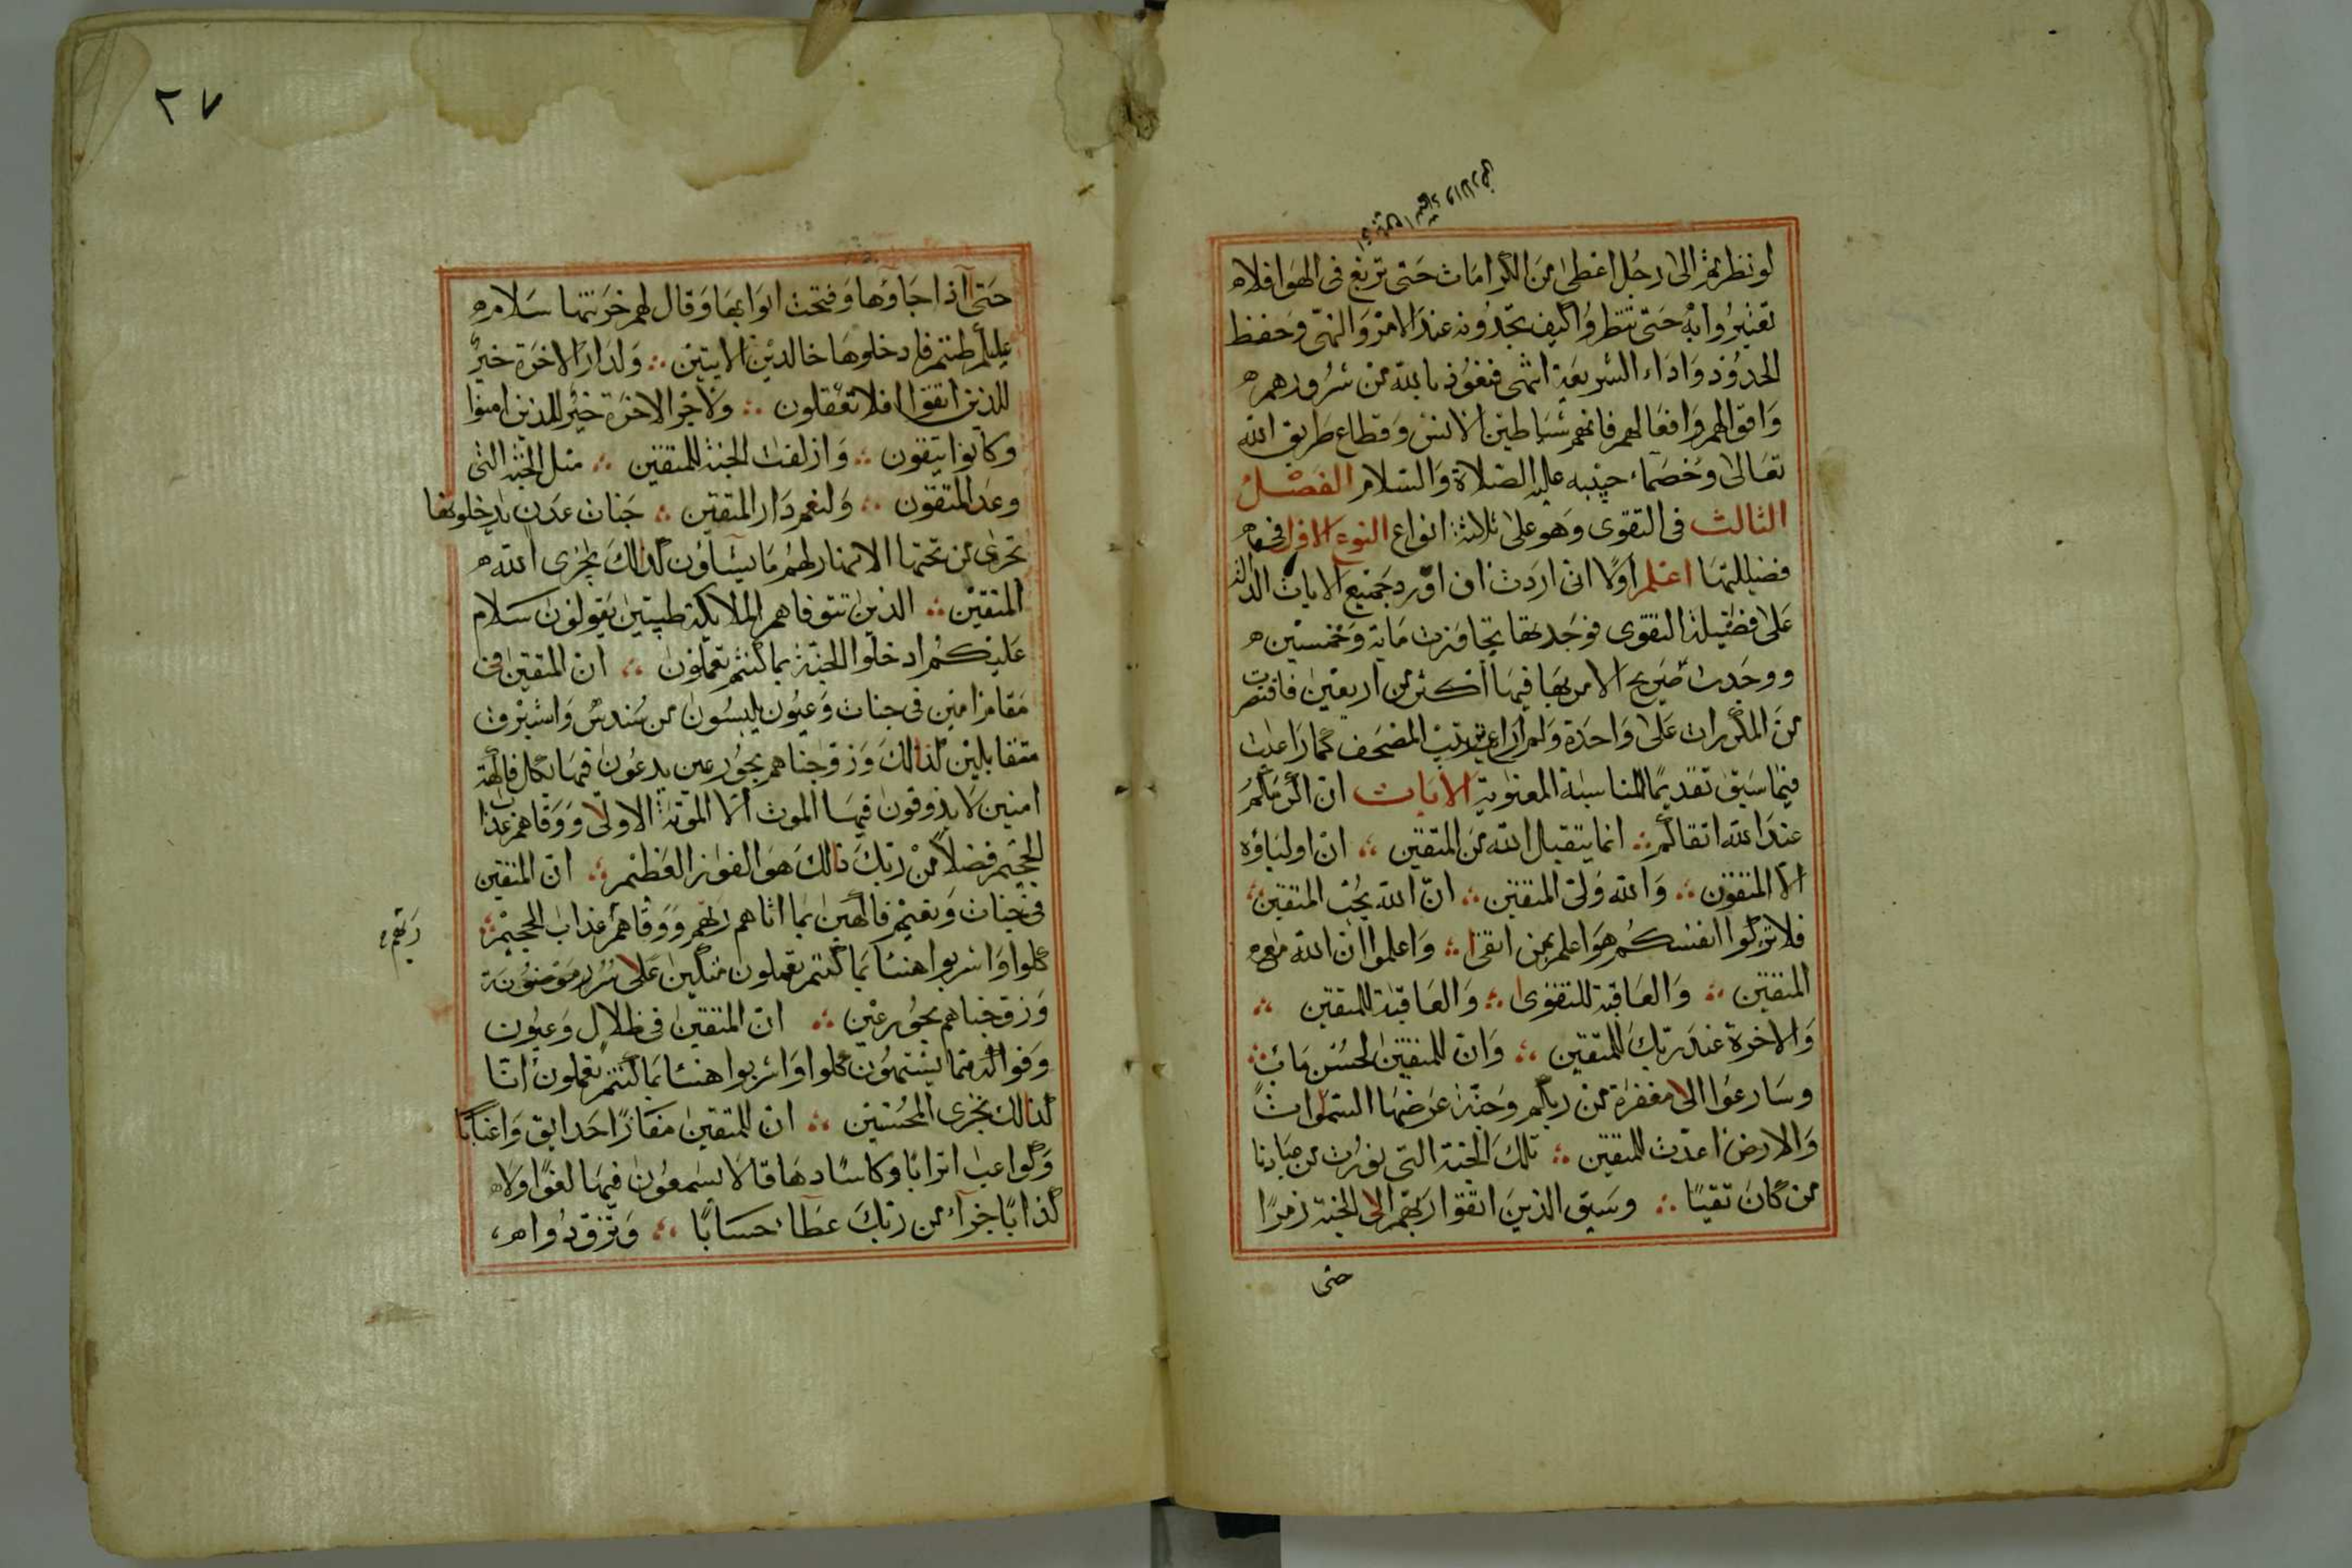 لو نظرتم الى رجل اعطى من الكرامات حتى تربع فى الهوا فلا
تغتروا به حتى تنظروا كيف تجدونه عند الامر والنهى وحفظ
الحدود واداء الشريعة انتهى فنعوذ بالله من شرورهم
واقوالهم وافعالهم فانهم شياطين الانس وقطاع طريق الله
تعالى وخصماء حبيبه عليه الصلاة والسلام الفصل
الثالث فى التقوى وهو على ثلاثة انواع النوع الاول فى
فضيلتها اعلم اولا انى اردت ان اورد جميع الايات الدالة
على فضيلة التقوى فوجدتها تجاوزت ماية وخمسين
ووجدت صريح الامر بها فيها اكثر من اربعين فاقتصرت
من المكررات على واحدة ولم اراع ترتيب المصحف كما راعيت
فيما سبق تقديما للمناسبة المعنوية الايات ان اكرمكم
عند الله اتقاكم انما يتقبل الله من المتقين ان اولياؤه
الا المتقون والله ولى المتقين ان الله يحب المتقين
فلا تزكوا انفسكم هو اعلم بمن اتقى واعلموا ان الله مع
المتقين والعاقبة للتقوى والعاقبة للمتقين
والاخرة عند ربك للمتقين وان للمتقين لحسن ماب
وسارعوا الى مغفرة من ربكم وجنة عرضها السموات
والارض اعدت للمتقين تلك الجنة التى نورث من عبادنا
من كان تقيا وسيق الذين اتقوا ربهم الى الجنة زمرا
حتى
٢٧
حتى اذا جاؤها وفتحت ابوابها وقال لهم خزنتها سلام
عليكم طبتم فادخلوها خالدين الايتين ولدار الاخرة خير
للذين اتقوا افلا تعقلون ولاجر الاخرة خير للذين امنوا
وكانوا يتقون وازلفت الجنة للمتقين مثل الجنة التى
وعد المتقون ولنعم دار المتقين جنات عدن يدخلونها
تجرى من تحتها الانهار لهم ما يشاؤن كذلك يجزى الله
المتقين الذين تتوفاهم الملايكة طيبين يقولون سلام
عليكم ادخلوا الجنة بما كنتم تعملون ان المتقين فى
مقام امين فى جنات وعيون يلبسون من سندس واستبرق
متقابلين كذالك وزوجناهم بحور عين يدعون فيها بكل فاكهة
امنين لا يذوقون فيها الموت الا الموتة الاولى ووقاهم عذاب
الجحيم فضلا من ربك ذالك هو الفوز العظيم ان المتقين
فى جنات ونعيم فاكهين بما اتاهم ربهم ووقاهم عذاب الجحيم
ربهم
كلوا واشربوا هنيئا بما كنتم تعملون متكين على سرر موضونة
وزوجناهم بحور عين ان المتقين فى ظلال وعيون
وفواكه مما يشتهون كلوا واشربوا هنيئا بما كنتم تعملون انا
كذالك نجزى المحسنين ان للمتقين مفازا حدايق واعنابا
وكواعب اترابا وكاسا دهاقا لا يسمعون فيها لغوا ولا
كذابا جزآء من ربك عطآء حسابا وتزودوا